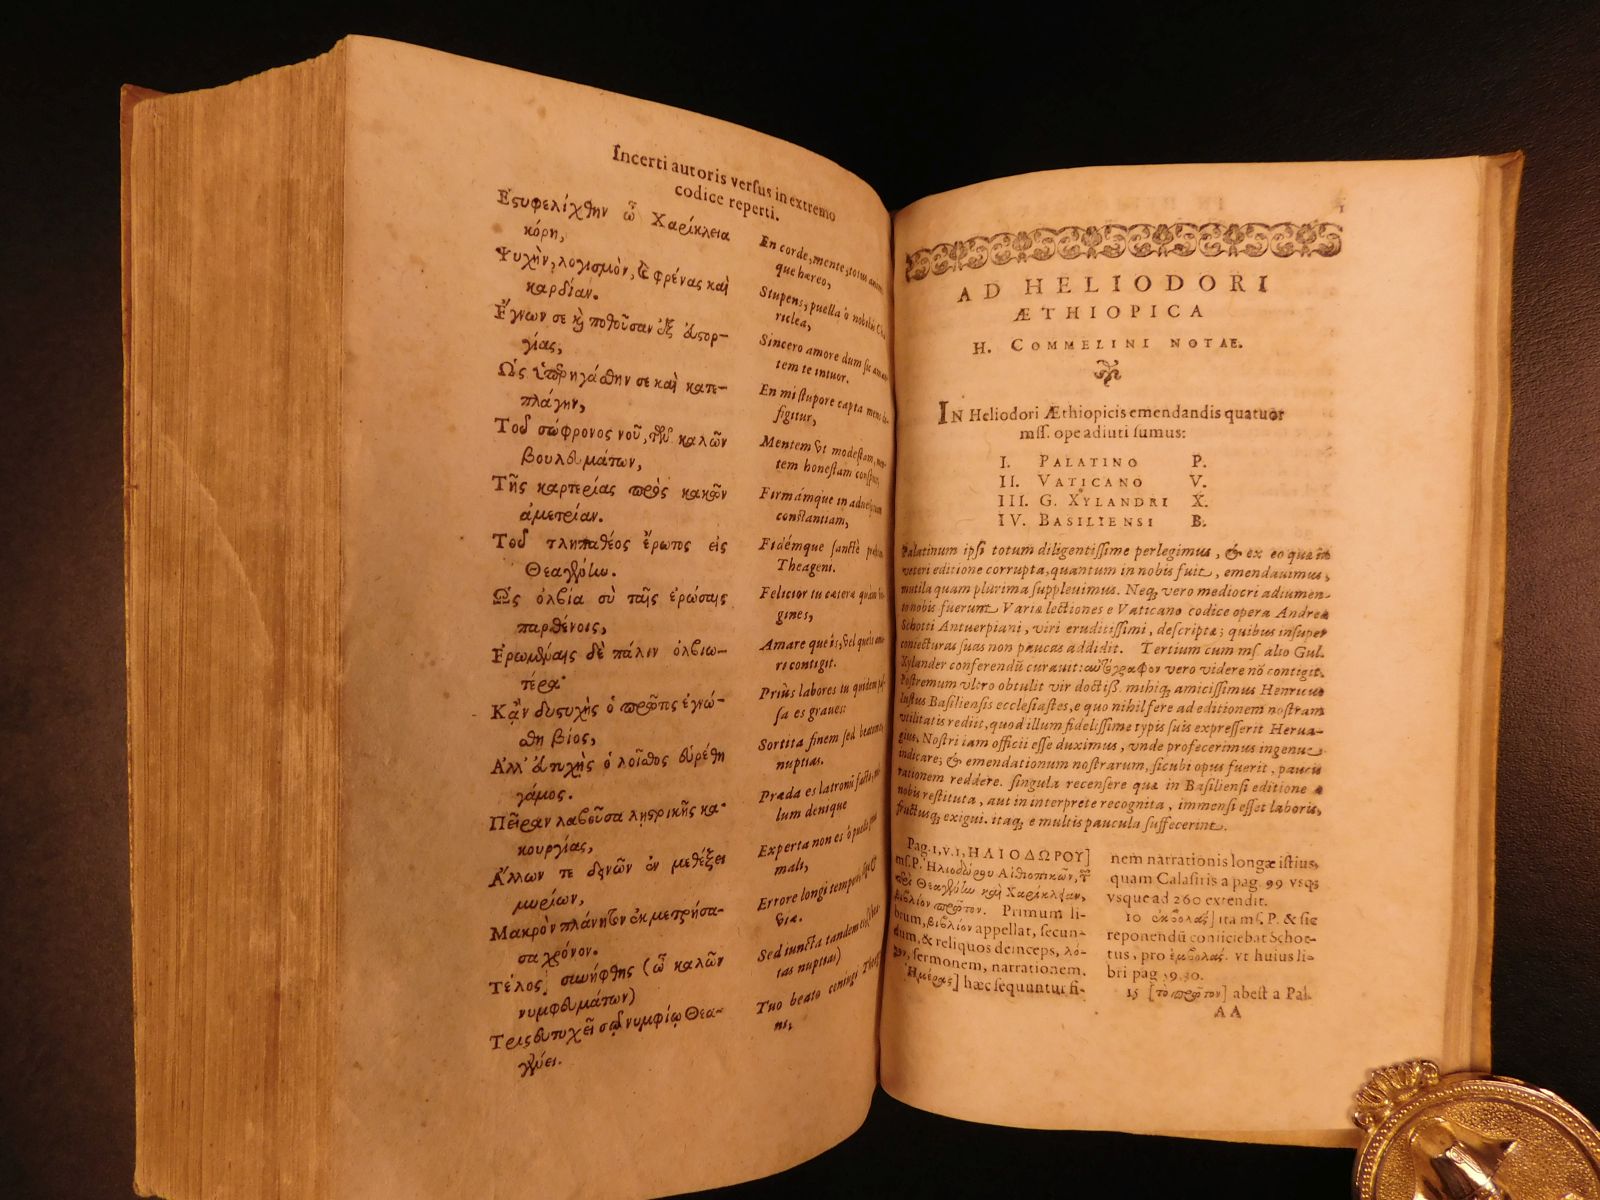 Incerti autoris versus in extremo
codice reperti.
Εστυφελίχθην ὦ Χαρίκλεια
κόρη,
Ψυχὴν, λογισμὸν, καὶ φρένας καὶ
καρδίαν.
Ἔγνων σε καὶ ποθοῦσαν ἐξ ἀστορ-
γίας,
Ὡς ὑπερηγάσθην σε καὶ κατε-
πλάγην,
Τοῦ σώφρονος νοῦ, τῶν καλῶν
βουλευμάτων,
Τῆς καρτερίας πρὸς κακῶν
ἀμετρίαν.
Τοῦ τλησπαθέος ἔρωτος εἰς
Θεαγένην.
Ὡς ὀλβία σὺ ταῖς ἐρώσαις
παρθένοις,
Ερωμέναις δὲ πάλιν ὀλβιω-
τέρα·
Κἂν δυστυχὴς ὁ πρῶτος ἐγνώ-
σθη βίος,
Αλλ' εὐτυχὴς ὁ λοῖσθος εὑρέθη
γάμος.
Πεῖραν λαβοῦσα λῃστρικῆς κα-
κουργίας,
Ἄλλων τε δεινῶν ἐν μεθέξει
μυρίων,
Μακρὸν πλάνητον ἐκμετρήσα-
σα χρόνον.
Τέλος συνήφθης (ὦ καλῶν
νυμφευμάτων)
Τρισευτυχεῖ σῷ νυμφίῳ Θεα-
γένει.
En corde, mente, totus
que hæreo,
Stupens, puella ô nobilis
riclea,
Sincero amore dum sic
tem te intuor.
En mi stupore capta mens
figitur,
Mentem vt modestam,
tem honestam
Firmámque in aduersum
constantiam,
Fidémque sanctè
Theageni.
Felicior tu cæteræ quàm
gines,
Amare queis, vel queis
ri contigit.
Priùs labores tu quidem
sa es graues:
Sortita finem sed
nuptias.
Præda es latronū facta,
lum denique
Experta non es ô puella
mali,
Errore longi temporis
viæ.
Sed iuncta tandem es
tas nuptias)
Tuo beato coniugi
ni.
1
AD HELIODORI
ÆTHIOPICA
H. COMMELINI NOTAE.
IN Heliodori Æthiopicis emendandis quatuor
mss. ope adiuti sumus:
I. PALATINO P.
II. VATICANO V.
III. G. XYLANDRI X.
IV. BASILIENSI B.
Palatinum ipsi totum diligentissime perlegimus, & ex eo quæ in
veteri editione corrupta, quantum in nobis fuit, emendauimus,
mutila quam plurima suppleuimus. Neq, vero mediocri adiumen-
to nobis fuerunt Variæ lectiones e Vaticano codice opera Andreæ
Schotti Antuerpiani, viri eruditissimi, descriptæ; quibus insuper
coniecturas suas non paucas addidit. Tertium cum ms. alio Gul.
Xylander conferendū curauit: αὐτόγραφον vero videre nō contigit.
Postremum vltro obtulit vir doctiss. mihiq, amicissimus Henricus
Iustus Basiliensis ecclesiastes, e quo nihil fere ad editionem nostram
vtilitatis rediit, quod illum fidelissime typis suis expresserit Herua-
gius. Nostri iam officii esse duximus, vnde profecerimus ingenue
indicare; & emendationum nostrarum, sicubi opus fuerit, paucis
rationem reddere. singula recensere quæ in Basiliensi editione a
nobis restituta, aut in interprete recognita, immensi esset laboris,
fructusq, exigui. itaq, e multis paucula suffecerint.
Pag. 1, v. 1, ΗΛΙΟΔΩΡΟΥ]
ms. P. Ἡλιοδώρου Αἰθιοπικῶν, τῶν
περὶ Θεαγένην καὶ Χαρίκλειαν,
βιβλίον πρῶτον. Primum li-
brum, βιβλίον appellat, secun-
dum, & reliquos deinceps, λό-
γον, sermonem, narrationem.
Ἡμέρας] hæc sequuntur fi-
nem narrationis longæ istius,
quam Calasiris a pag. 99 vsq;
vsque ad 260 extendit.
10 ἐκβολας] ita ms. P. & sic
reponendū coniiciebat Schot-
tus, pro ἐμβολας. vt huius li-
bri pag 9. 30.
15 [τὸ πρῶτον] abest a Pal.
AA